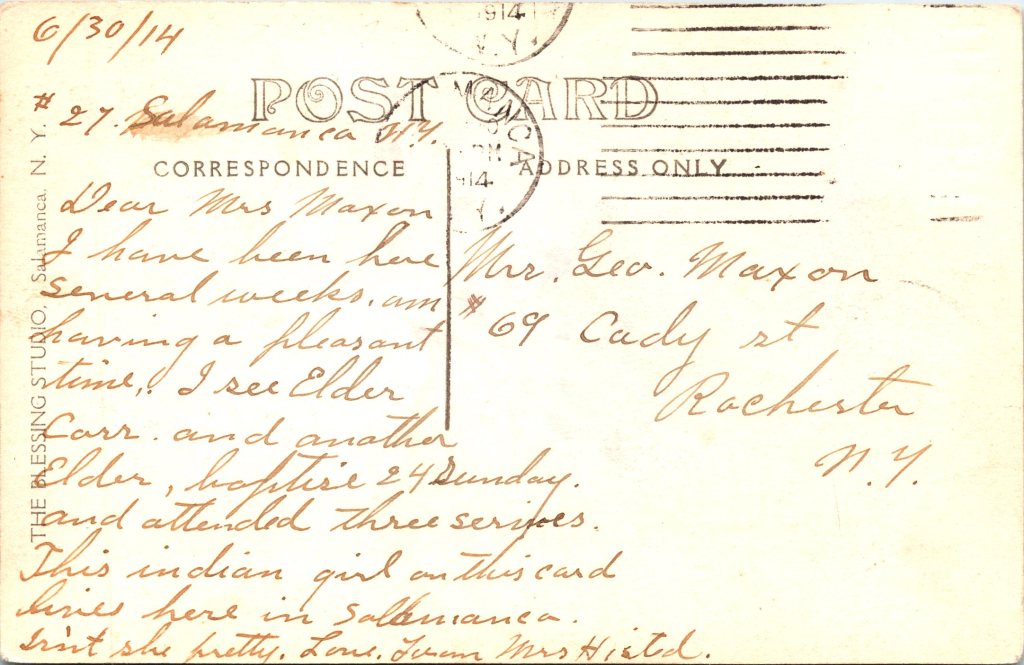 6/30/14
1914
N.Y.
POST CARD
# 27. Salamanca N.Y.
MANCA
PM
1914
Y.
CORRESPONDENCE
ADDRESS ONLY
Dear Mrs Maxon
I have been here
several weeks. am
having a pleasant
time,. I see Elder
Corr. and another
Elder, baptise 24 Sunday.
and attended three services.
This indian girl on this card
lives here in Salamanca.
Isn't she pretty. Love. From Mrs
Mrs. Geo. Maxon
# 69 Cady st
Rochester
N.Y.
THE BLESSING STUDIO, Salamanca, N. Y.